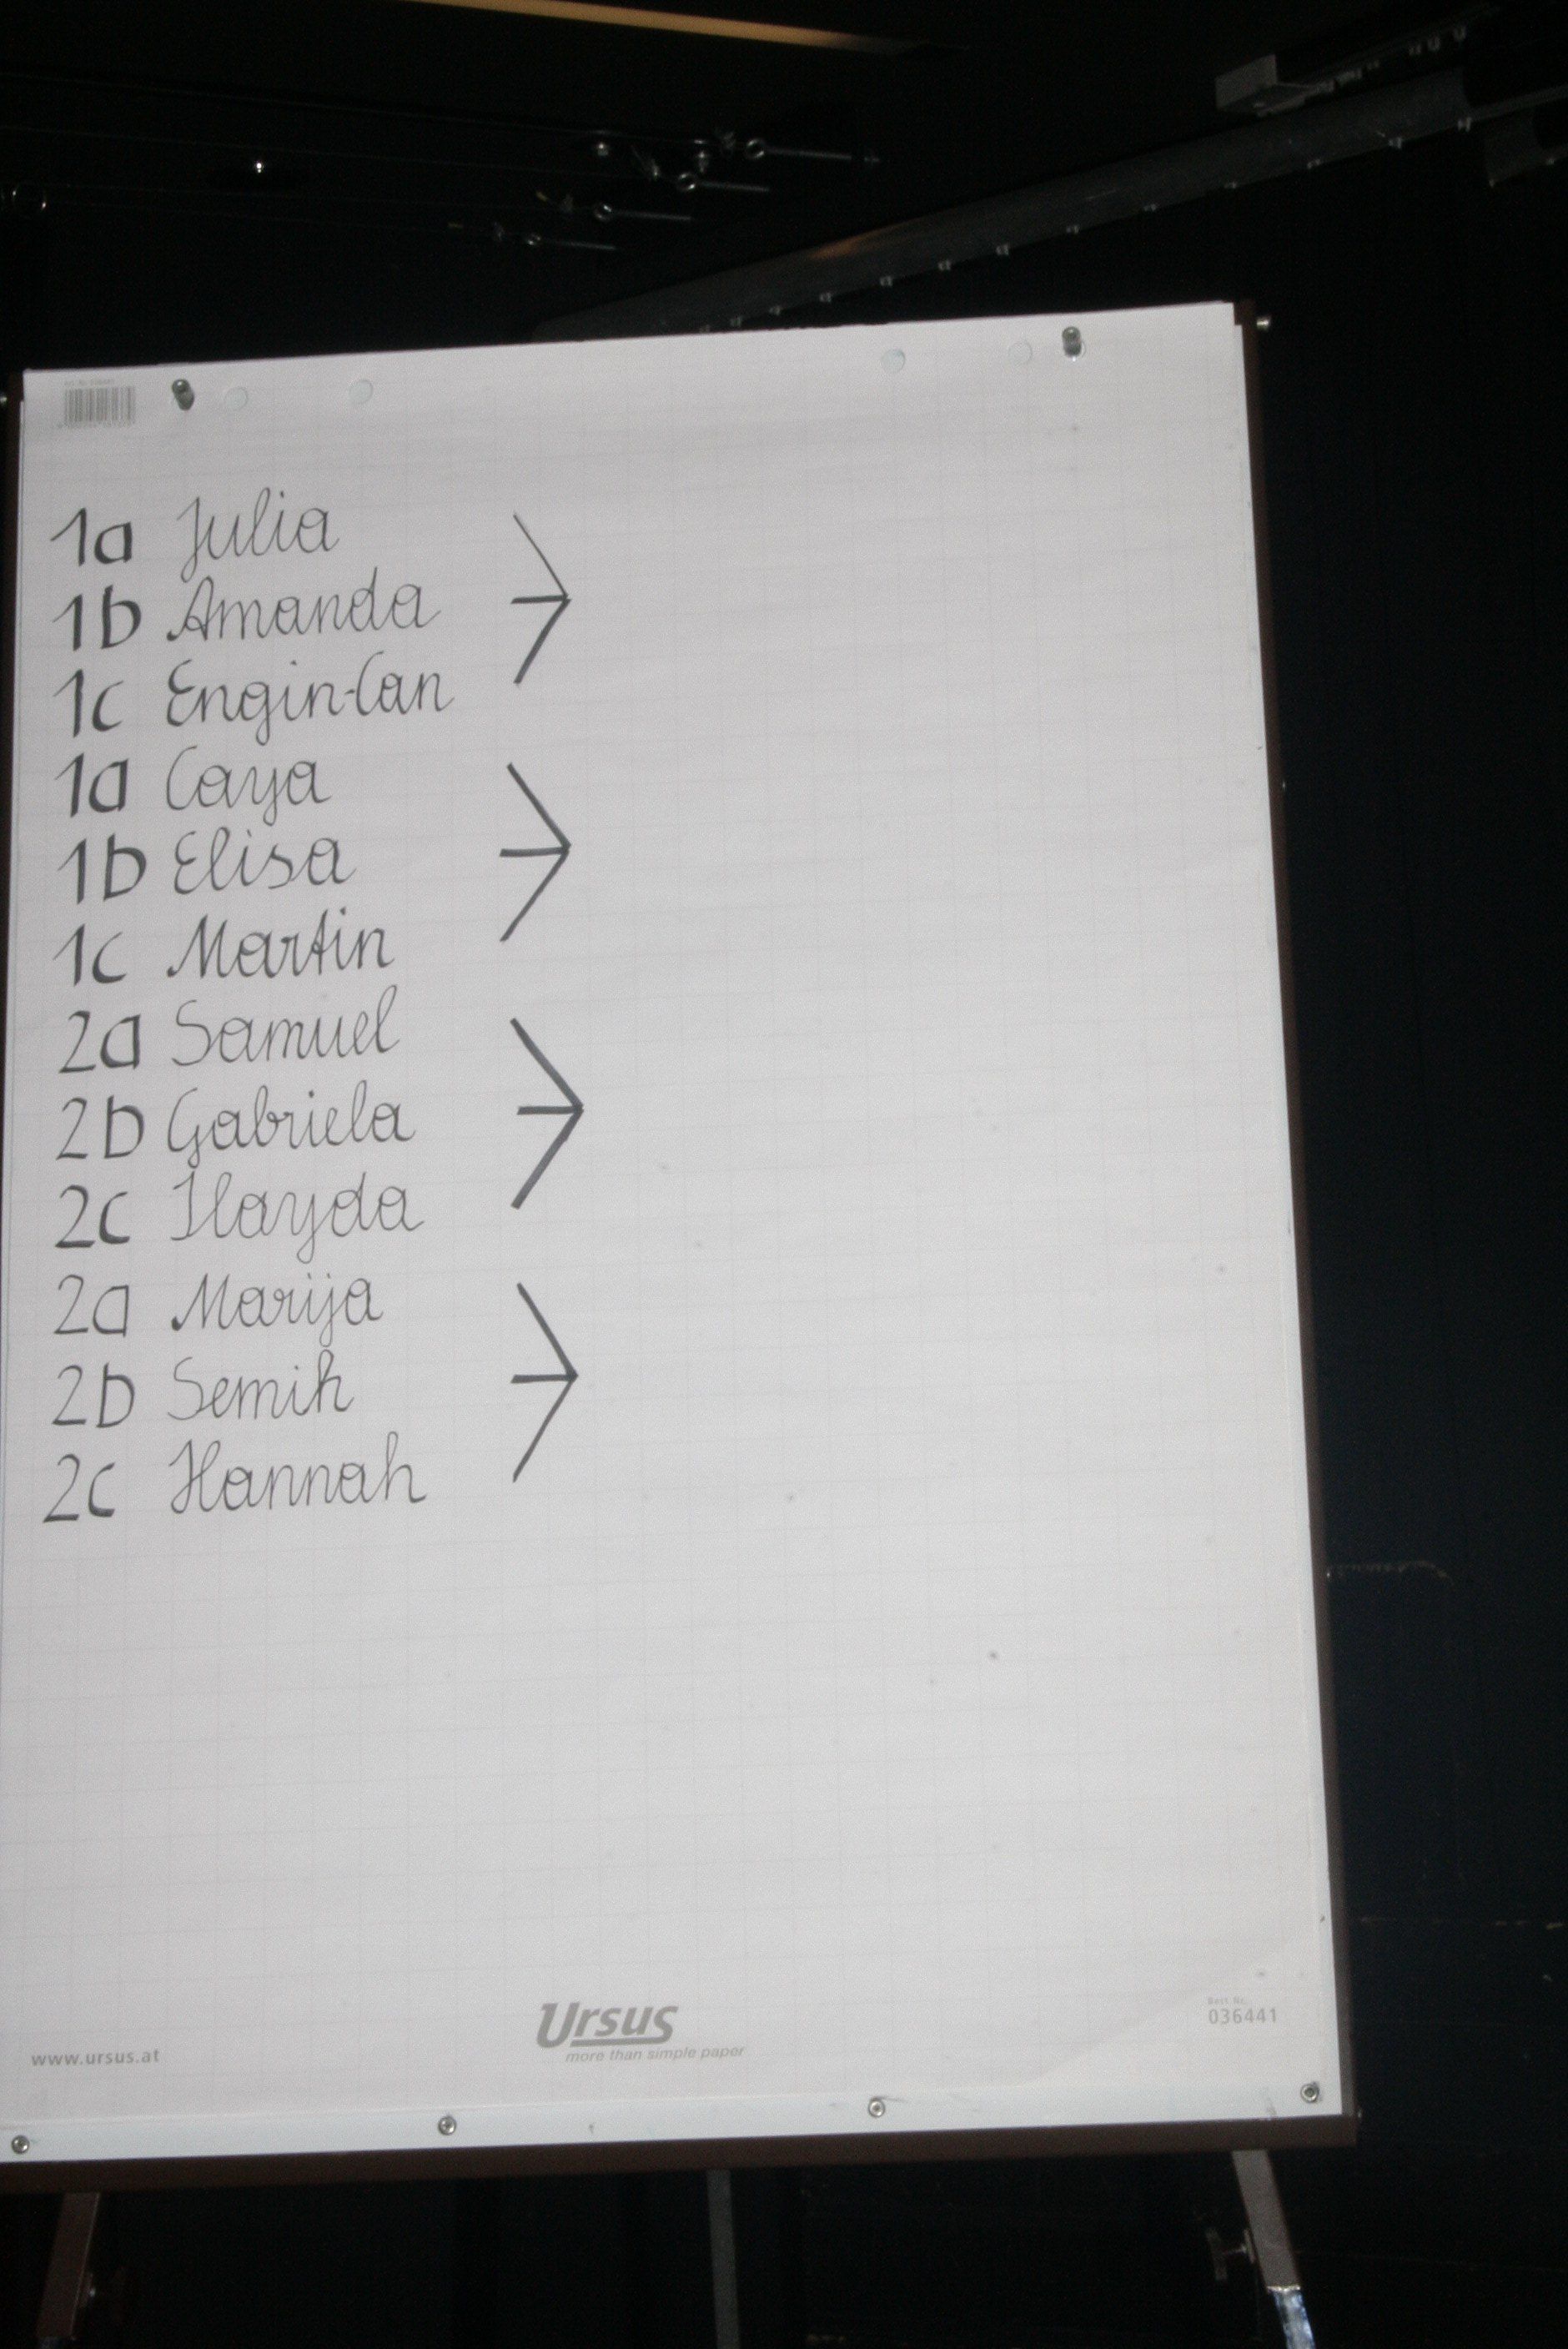 1a Julia
1b Amanda
1c Engin-Can
1a Caya
1b Elisa
1c Martin
2a Samuel
2b Gabriela
2c Ilayda
2a Marija
2b Semih
2c Hannah
Ursus
more than simple paper
www.ursus.at
Best Nr.
036441